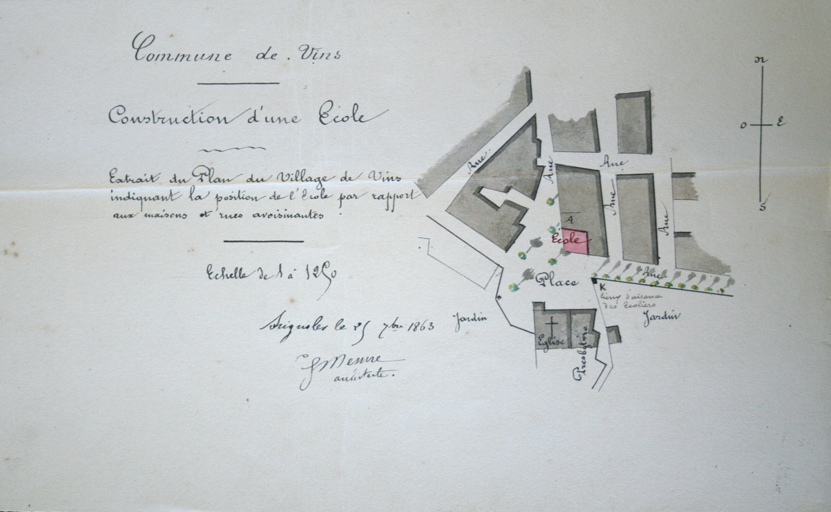 Commune de Vins
Construction d'une Ecole
Extrait du Plan du Village de Vins
indiquant la position de l'Ecole par rapport
aux maisons et rues avoisinantes
Echelle de 1 à 1250
le 25 7bre 1863
architecte.
N
O
E
S
Rue
Rue
Rue
Rue
Rue
A
Ecole
Place
Rue
K
lieux d'aisances
des Ecoliers
Jardin
Jardin
Eglise
Presbytère